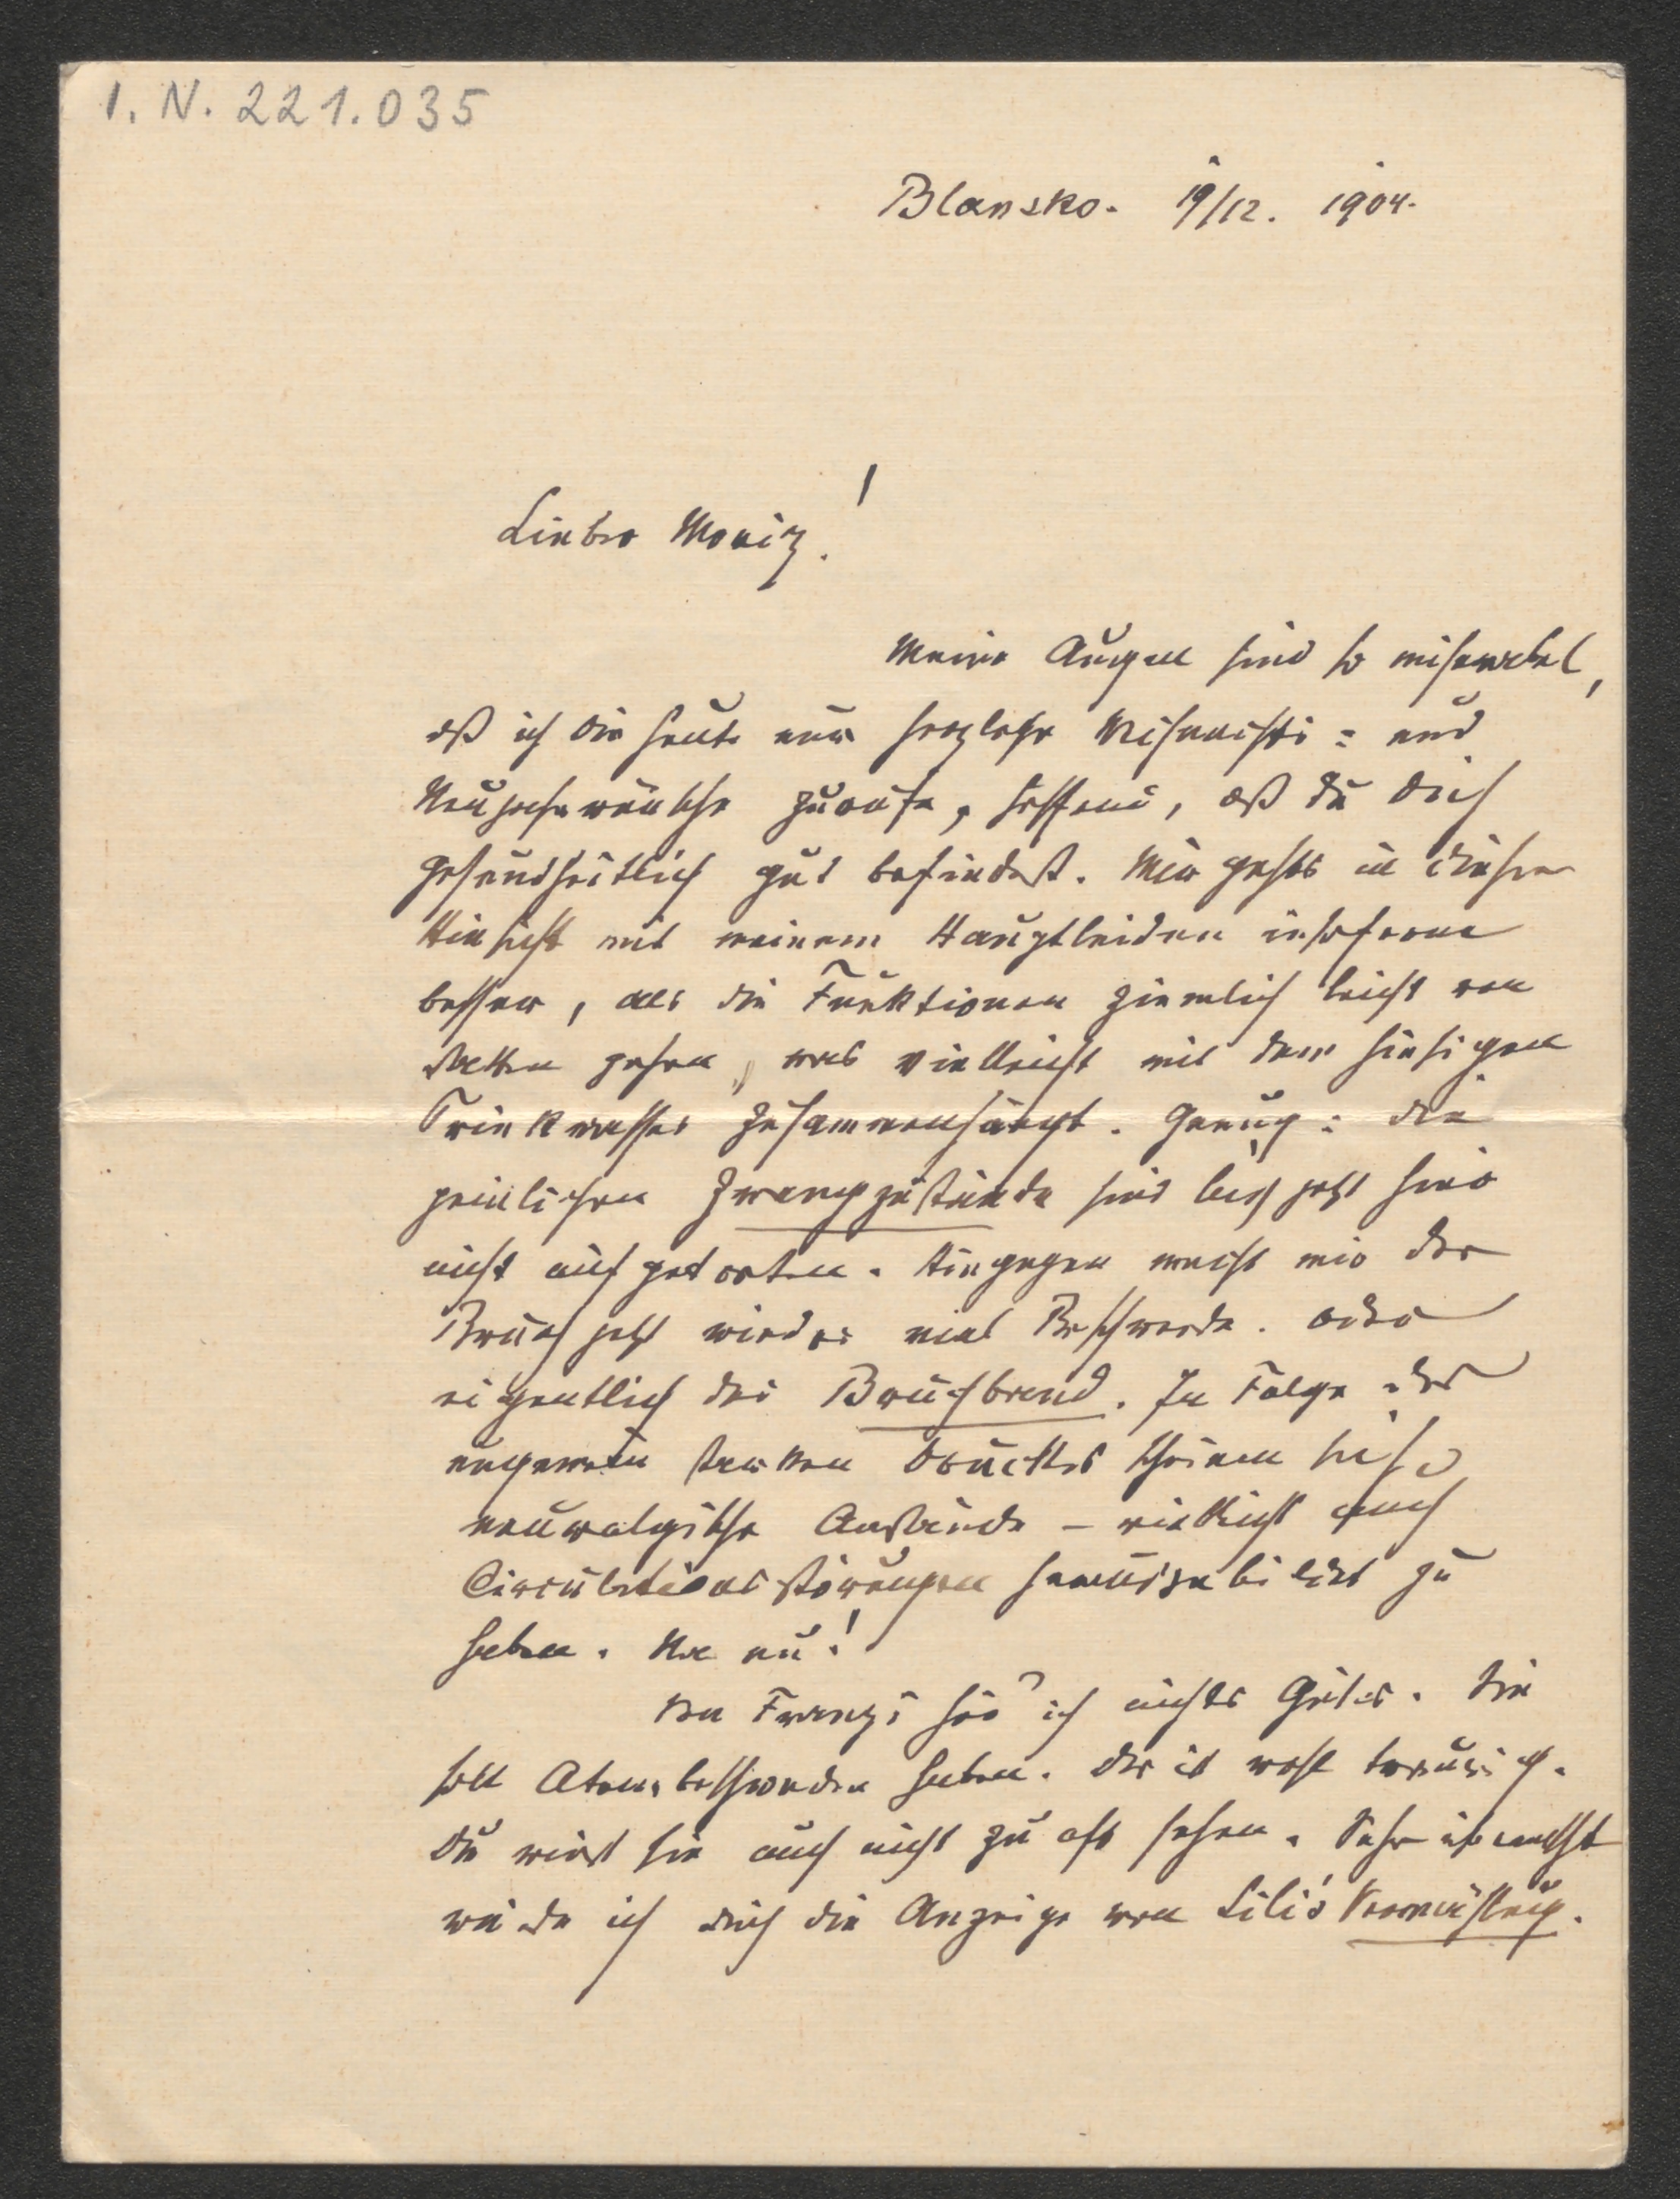 I. N. 221.035
Blansko. 19/12. 1904.
Lieber Moriz!
Meine Augen sind so miserabel,
daß ich Dir heute nur herzlichste Weihnachts= und
Neujahrswünsche zurufe, hoffend, daß Du Dich
gesundheitlich gut befindest. Mir gehts in dieser
Hinsicht mit meinem Hauptleiden insoferne
besser, als die Funktionen ziemlich leicht von
statten gehen, was vielleicht mit dem hiesigen
Trinkwasser zusammenhängt. Genug: die
peinlichen Zwangzustände sind bis jetzt hier
nicht aufgetreten. Hingegen macht mir der
Bruch jetzt wieder viel Beschwerde. Oder
eigentlich das Bruchband. In Folge des
ungemein starken Druckes scheinen sich
neuralgische Zustände – vielleicht auch
Circulationsstörungen herausgebildet zu
haben. Na nu!
Von Franzi hör' ich nichts Gutes. Sie
soll Atembeschwerden haben. Das ist wohl traurig.
Du wirst sie auch nicht zu oft sehen. Sehr überrascht
wurde ich durch die Anzeige von Lili's Vermählung.